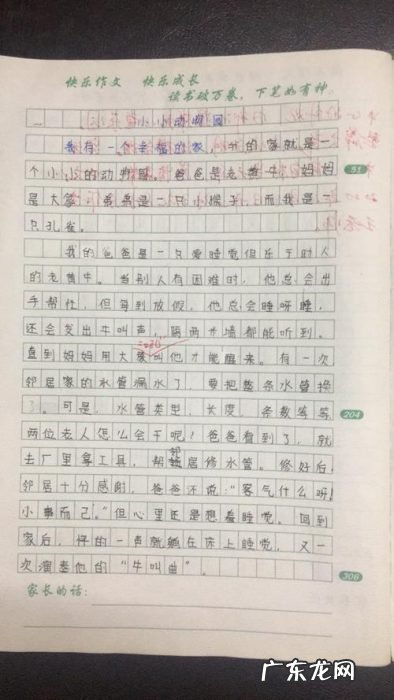 快乐作文 快乐成长
读书破万卷,下笔如有神。
小小动物园
我有一个幸福的家,我的家就是一
个小小的动物园。爸爸是老黄牛,妈妈
是大笨 弟弟是一只小猴子,而我是一
只孔雀。
51
我的爸爸是一只爱睡觉但乐于助人
的老黄牛。当别人有困难时,他总会出
手帮忙,但每到放假,他总会睡呀睡,
还会发出牛叫声,隔两木墙都能听到。
直到妈妈用大 叫他才能醒来。有一次
邻居家的水管漏水了,要把整条水管换
了。可是,水管类型,长度,条数等等
204
两位老人怎么会干呢!爸爸看到了,就
去厂里拿工具,帮邻居修水管。修好后,
邻居十分感谢,爸爸不说:“客气什么呀!
小事而已。”但心里还是想着睡觉。回到
家后,怦的一声就躺在床上睡觉,又一
次演奏他的“牛叫曲”。
306
家长的话:
广东龙网